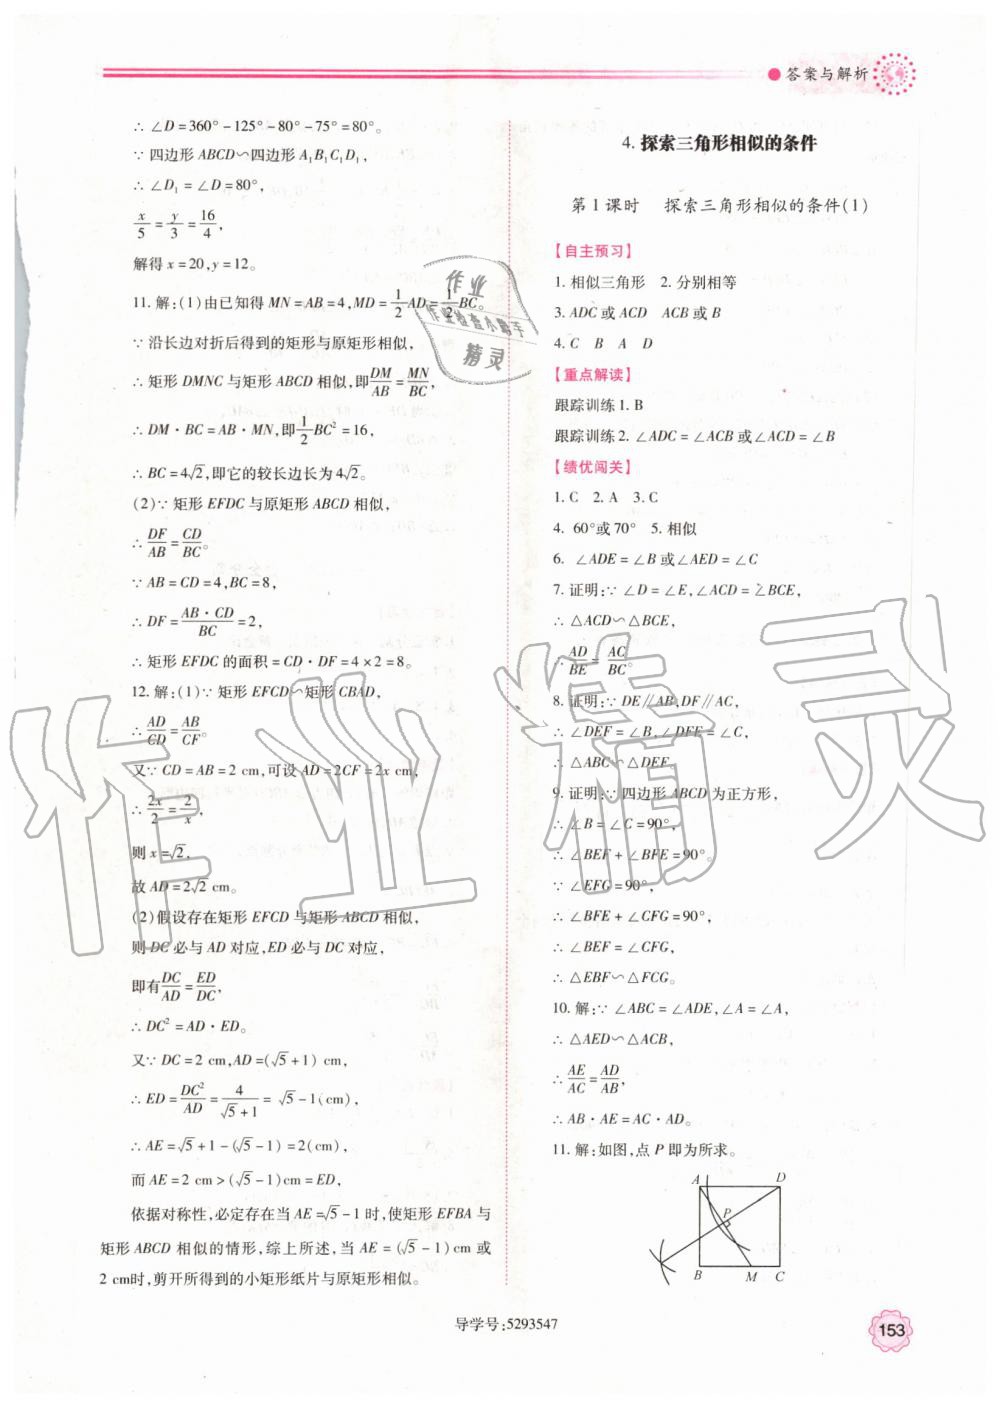 答案与解析
∴ ∠D=360°-125°-80°-75°=80°。
∵ 四边形 ABCD∽四边形 A₁B₁C₁D₁，
∴ ∠D₁=∠D=80°，
x/5=y/3=16/4，
解得 x=20，y=12。
11. 解：(1)由已知得 MN=AB=4，MD=1/2AD=1/2BC。
∵ 沿长边对折后得到的矩形与原矩形相似，
∴ 矩形 DMNC 与矩形 ABCD 相似，即DM/AB=MN/BC，
∴ DM·BC=AB·MN，即1/2BC²=16，
∴ BC=4√2，即它的较长边长为4√2。
(2)∵ 矩形 EFDC 与原矩形 ABCD 相似，
∴ DF/AB=CD/BC。
∵ AB=CD=4，BC=8，
∴ DF=AB·CD/BC=2，
∴ 矩形 EFDC 的面积=CD·DF=4×2=8。
12. 解：(1)∵ 矩形 EFCD∽矩形 CBAD，
∴ AD/CD=AB/CF。
又∵ CD=AB=2 cm，可设 AD=2CF=2x cm，
∴ 2x/2=2/x，
则 x=√2，
故 AD=2√2 cm。
(2)假设存在矩形 EFCD 与矩形 ABCD 相似，
则 DC 必与 AD 对应，ED 必与 DC 对应，
即有DC/AD=ED/DC，
∴ DC²=AD·ED。
又∵ DC=2 cm，AD=(√5+1) cm，
∴ ED=DC²/AD=4/(√5+1)=√5-1(cm)，
∴ AE=√5+1-(√5-1)=2(cm)，
而 AE=2 cm>(√5-1)cm=ED，
依据对称性，必定存在当 AE=√5-1 时，使矩形 EFBA 与
矩形 ABCD 相似的情形，综上所述，当 AE=(√5-1) cm 或
2 cm时，剪开所得到的小矩形纸片与原矩形相似。
4. 探索三角形相似的条件
第 1 课时 探索三角形相似的条件(1)
【自主预习】
1. 相似三角形 2. 分别相等
3. ADC 或 ACD ACB 或 B
4. C B A D
【重点解读】
跟踪训练 1. B
跟踪训练 2. ∠ADC=∠ACB 或∠ACD=∠B
【绩优闯关】
1. C 2. A 3. C
4. 60°或 70° 5. 相似
6. ∠ADE=∠B 或∠AED=∠C
7. 证明：∵ ∠D=∠E，∠ACD=∠BCE，
∴ △ACD∽△BCE，
∴ AD/BE=AC/BC。
8. 证明：∵ DE∥AB，DF∥AC，
∴ ∠DEF=∠B，∠DFE=∠C，
∴ △ABC∽△DEF。
9. 证明：∵ 四边形 ABCD 为正方形，
∴ ∠B=∠C=90°，
∴ ∠BEF+∠BFE=90°。
∵ ∠EFG=90°，
∴ ∠BFE+∠CFG=90°，
∴ ∠BEF=∠CFG，
∴ △EBF∽△FCG。
10. 解：∵ ∠ABC=∠ADE，∠A=∠A，
∴ △AED∽△ACB，
∴ AE/AC=AD/AB，
∴ AB·AE=AC·AD。
11. 解：如图，点 P 即为所求。
A D
P
B M C
导学号：5293547
153
作业
作业检查小助手
精灵
作业精灵